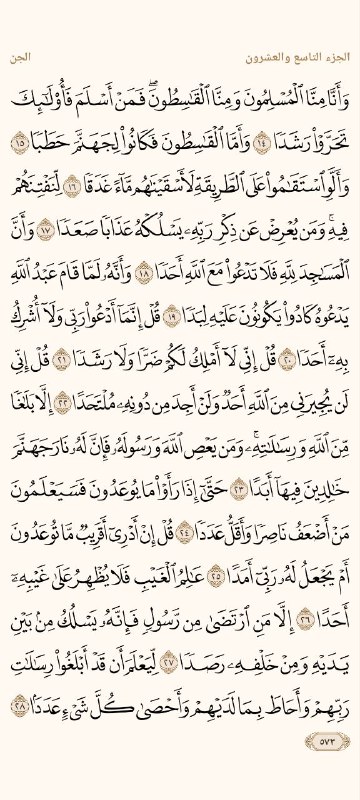 الجزء التاسع والعشرون الجن
وَأَنَّا مِنَّا ٱلْمُسْلِمُونَ وَمِنَّا ٱلْقَٰسِطُونَۖ فَمَنْ أَسْلَمَ فَأُو۟لَٰٓئِكَ
تَحَرَّوْا۟ رَشَدًا ١٤ وَأَمَّا ٱلْقَٰسِطُونَ فَكَانُوا۟ لِجَهَنَّمَ حَطَبًا ١٥
وَأَلَّوِ ٱسْتَقَٰمُوا۟ عَلَى ٱلطَّرِيقَةِ لَأَسْقَيْنَٰهُم مَّآءً غَدَقًا ١٦ لِّنَفْتِنَهُمْ
فِيهِۚ وَمَن يُعْرِضْ عَن ذِكْرِ رَبِّهِۦ يَسْلُكْهُ عَذَابًا صَعَدًا ١٧ وَأَنَّ
ٱلْمَسَٰجِدَ لِلَّهِ فَلَا تَدْعُوا۟ مَعَ ٱللَّهِ أَحَدًا ١٨ وَأَنَّهُۥ لَمَّا قَامَ عَبْدُ ٱللَّهِ
يَدْعُوهُ كَادُوا۟ يَكُونُونَ عَلَيْهِ لِبَدًا ١٩ قُلْ إِنَّمَآ أَدْعُوا۟ رَبِّى وَلَآ أُشْرِكُ
بِهِۦٓ أَحَدًا ٢٠ قُلْ إِنِّى لَآ أَمْلِكُ لَكُمْ ضَرًّا وَلَا رَشَدًا ٢١ قُلْ إِنِّى
لَن يُجِيرَنِى مِنَ ٱللَّهِ أَحَدٌ وَلَنْ أَجِدَ مِن دُونِهِۦ مُلْتَحَدًا ٢٢ إِلَّا بَلَٰغًا
مِّنَ ٱللَّهِ وَرِسَٰلَٰتِهِۦۚ وَمَن يَعْصِ ٱللَّهَ وَرَسُولَهُۥ فَإِنَّ لَهُۥ نَارَ جَهَنَّمَ
خَٰلِدِينَ فِيهَآ أَبَدًا ٢٣ حَتَّىٰٓ إِذَا رَأَوْا۟ مَا يُوعَدُونَ فَسَيَعْلَمُونَ
مَنْ أَضْعَفُ نَاصِرًا وَأَقَلُّ عَدَدًا ٢٤ قُلْ إِنْ أَدْرِىٓ أَقَرِيبٌ مَّا تُوعَدُونَ
أَمْ يَجْعَلُ لَهُۥ رَبِّىٓ أَمَدًا ٢٥ عَٰلِمُ ٱلْغَيْبِ فَلَا يُظْهِرُ عَلَىٰ غَيْبِهِۦٓ
أَحَدًا ٢٦ إِلَّا مَنِ ٱرْتَضَىٰ مِن رَّسُولٍ فَإِنَّهُۥ يَسْلُكُ مِنۢ بَيْنِ
يَدَيْهِ وَمِنْ خَلْفِهِۦ رَصَدًا ٢٧ لِّيَعْلَمَ أَن قَدْ أَبْلَغُوا۟ رِسَٰلَٰتِ
رَبِّهِمْ وَأَحَاطَ بِمَا لَدَيْهِمْ وَأَحْصَىٰ كُلَّ شَىْءٍ عَدَدًۢا ٢٨
٥٧٣